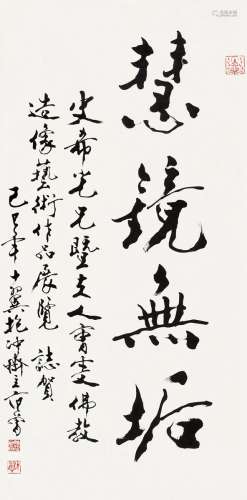 慧鏡無垢
史希光兄暨夫人曾雯佛教
造像藝術作品展覽 誌賀
己卯年 十翼抱冲齋主范曾